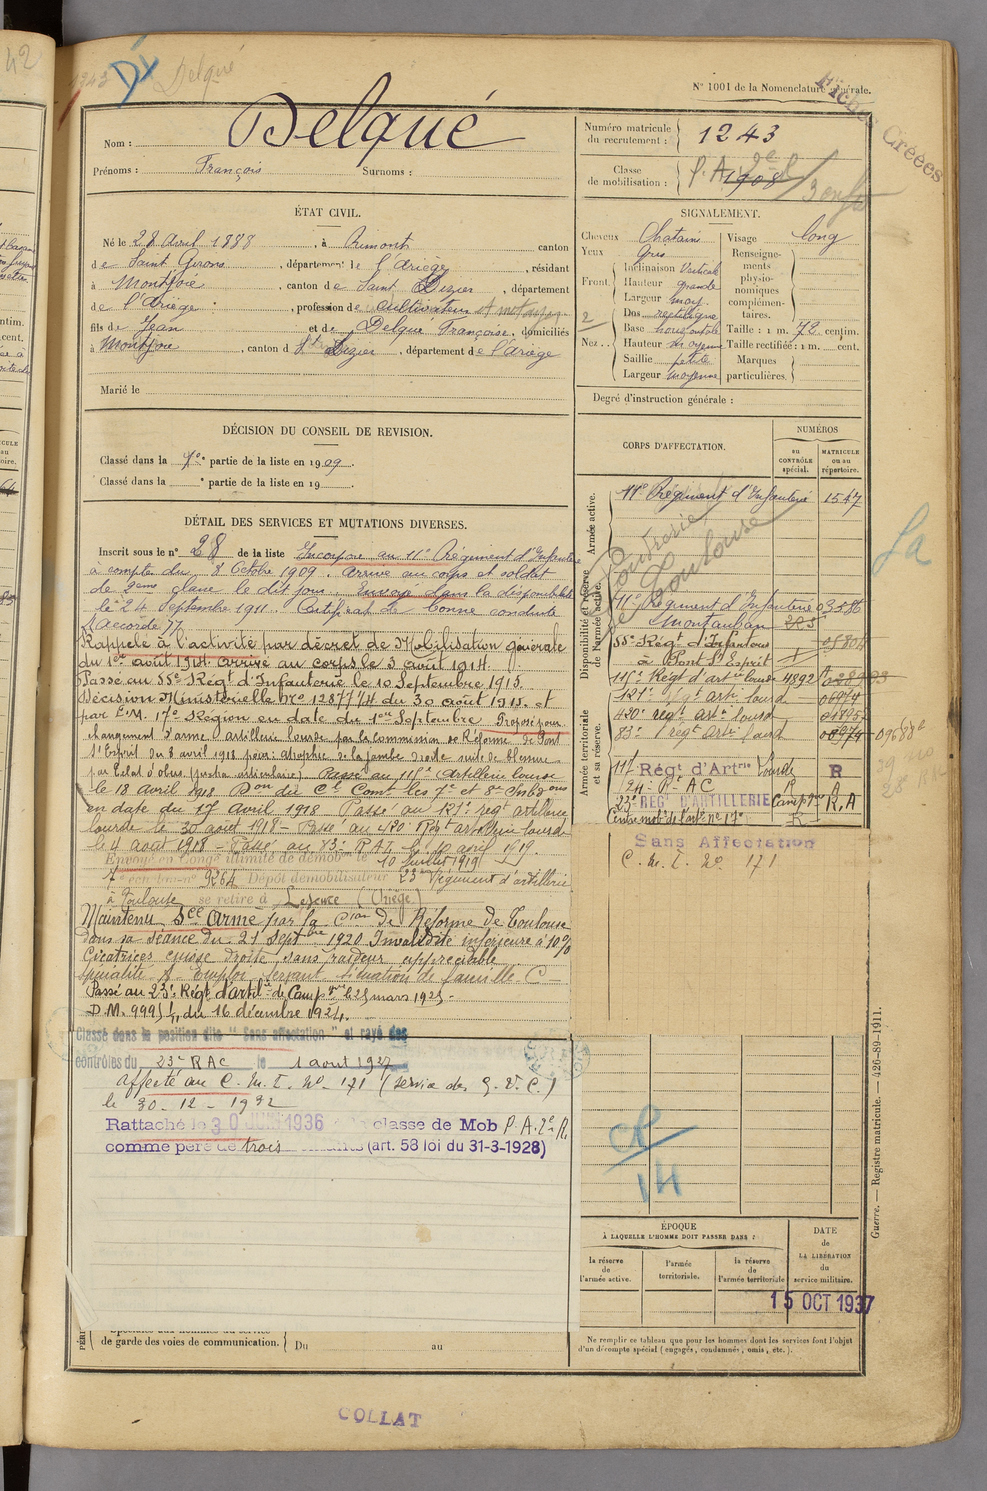 1243
Dy
Delqué
N° 1001 de la Nomenclature générale.
Fiches Créées
Nom : Delqué
Prénoms : François Surnoms :
Numéro matricule du recrutement : 1243
Classe de mobilisation : P. A. 1908
ÉTAT CIVIL.
Né le 28 Avril 1888, à Rimont canton
de Saint Girons, département de l'Ariège, résidant
à Montfoie, canton de Saint Lizier, département
de l'Ariège, profession de cultivateur
fils de Jean et de Delque Françoise, domiciliés
à Montfoie, canton d St Lizier, département de l'Ariège
Marié le
SIGNALEMENT.
Cheveux Chatains
Yeux Gris
Front. Inclinaison Vertical
Hauteur grande
Largeur moy.
Nez. Dos rectiligne
Base horizontale
Hauteur moyenne
Saillie petite
Largeur moyenne
Visage long
Renseignements physionomiques complémentaires.
Taille : 1 m. 72 centim.
Taille rectifiée : 1 m. cent.
Marques particulières.
Degré d'instruction générale :
DÉCISION DU CONSEIL DE REVISION.
Classé dans la 1e partie de la liste en 1909.
Classé dans la e partie de la liste en 19
DÉTAIL DES SERVICES ET MUTATIONS DIVERSES.
Inscrit sous le n° 28 de la liste Incorporé au 11e Régiment d'Infanterie
à compter du 8 Octobre 1909. Arrivé au corps et soldat
de 2eme classe le dit jour. Envoyé dans la disponibilité
le 24 Septembre 1911. Certificat de bonne conduite
Accordé
Rappelé à l'activité par décret de Mobilisation générale
du 1er août 1914. arrivé au corps le 3 août 1914.
Passé au 55e Régt d'Infanterie le 10 Septembre 1915.
Décision Ministérielle No 12877 1/4 du 30 août 1915. et
par E.M. 17e Région en date du 1er Septembre Proposé pour
changement d'arme artillerie lourde par la Commission de Réforme de Pont
St Esprit du 8 avril 1918 pour : atrophie de la jambe droite suite de blessure
par éclat d'obus. Passé au 111e artillerie lourde
le 18 Avril 1918
en date du 17 Avril 1918 Passé au 121e regt artillerie
lourde le 30 août 1918 - Passé au 420e Regt artillerie lourde
le 4 août 1918 - Passé au 83e R A L le 10 avril 1919.
Envoyé en Congé illimité de démob. le 10 juillet 1919
9264 Dépôt démobilisateur 23me Régiment d'artillerie
à Toulouse se retire à Lescure (Ariège)
Maintenu Sce Armé par la Cion de Réforme de Toulouse
dans sa séance du 21 Septbre 1920 Invalidité inférieure à 10%
Cicatrices cuisse droite, sans raideur appréciable
spécialité A Emploi servant situation de famille C
Passé au 23e Régt d'artie de Campgne le 25 mars 1925 -
D.M. 9995 1/1, du 16 décembre 1924.
Classé dans la position dite "Sans affectation" et rayé des
contrôles du 23e RAC le 1 août 1927
Affecté au C. M. I. No 171
le 30 - 12 - 1932
Rattaché le 30 JUIN 1936 classe de Mob P.A. 2e R.
comme père de trois enfants (art. 58 loi du 31-3-1928)
CORPS D'AFFECTATION.
NUMÉROS
au CONTRÔLE spécial.
MATRICULE ou au répertoire.
Armée active.
11e Régiment d'Infanterie 1547
Poudrerie
de Toulouse
Disponibilité et réserve de l'armée active.
11e Régiment d'Infanterie 03586
Montauban
55e Régt d'Infanterie
à Pont St Esprit
115e Régt d'artie lourde 4892
121e regt art. lourd 06974
420e régt artie lourd
83e régt artie lourd
Armée territoriale et sa réserve.
111 Régt d'Artrie Lourde R
24e Rt AC R
23e REGt D'ARTILLERIE Campgne R,A
Centre mob. de l'artie n° 17e R
Sans Affectation
C. M. I. No 171
CP
14
ÉPOQUE
À LAQUELLE L'HOMME DOIT PASSER DANS :
la réserve de l'armée active.
l'armée territoriale.
la réserve de l'armée territoriale
DATE de LA LIBÉRATION du service militaire.
15 OCT 1937
de garde des voies de communication. Du au
Ne remplir ce tableau que pour les hommes dont les services font l'objet
d'un décompte spécial (engagés, condamnés, omis, etc.).
Guerre. — Registre matricule. — 426-89-1911.
COLLAT